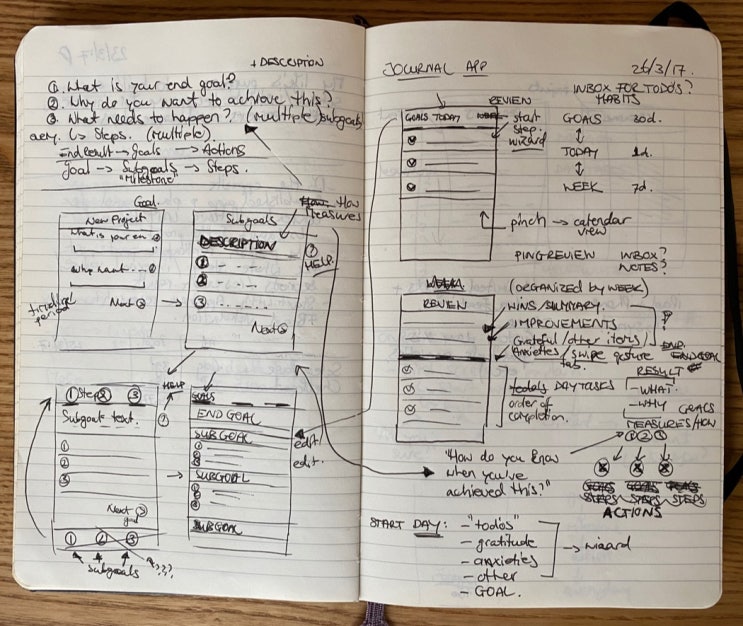 + DESCRIPTION
①. What is your end goal?
②. Why do you want to achieve this?
③. What needs to happen? (multiple) subgoals
↳ Steps. (multiple)
End Result → Goals → Actions
Goal → Subgoals → Steps.
"Milestone"
Goal
New Project
What is your en
Why want...
Next
time period
Subgoals
DESCRIPTION
①
②
③
Next
How
measures
?
HELP.
① Step ② ③
Subgoal text.
①
②
③
Next
goal
① ② ③
subgoals ???
HELP
?
GOALS
END GOAL
SUBGOAL
①
②
③
SUBGOAL
①
②
③
SUBGOAL
edit/
edit.
JOURNAL APP
26/3/17.
INBOX FOR TODO'S?
HABITS
REVIEW
GOALS TODAY
start
step.
wizard
GOALS 30d.
↕
TODAY 1d.
↕
WEEK 7d.
pinch → calendar
view
PING REVIEW INBOX?
NOTES?
(ORGANIZED BY WEEK)
REVIEW
WINS/SUMMARY.
IMPROVEMENTS
Grateful/other items
Anxieties/swipe gesture
tab.
?
todo's DAY TASKS
order of
completion.
RESULT
- WHAT.
- WHY
GOALS
MEASURES/HOW
① ② ③
"How do you know
when you've
achieved this?"
STEPS STEPS STEPS
ACTIONS
START DAY: - "todo's"
- gratitude
- anxieties → wizard
- other
- GOAL.